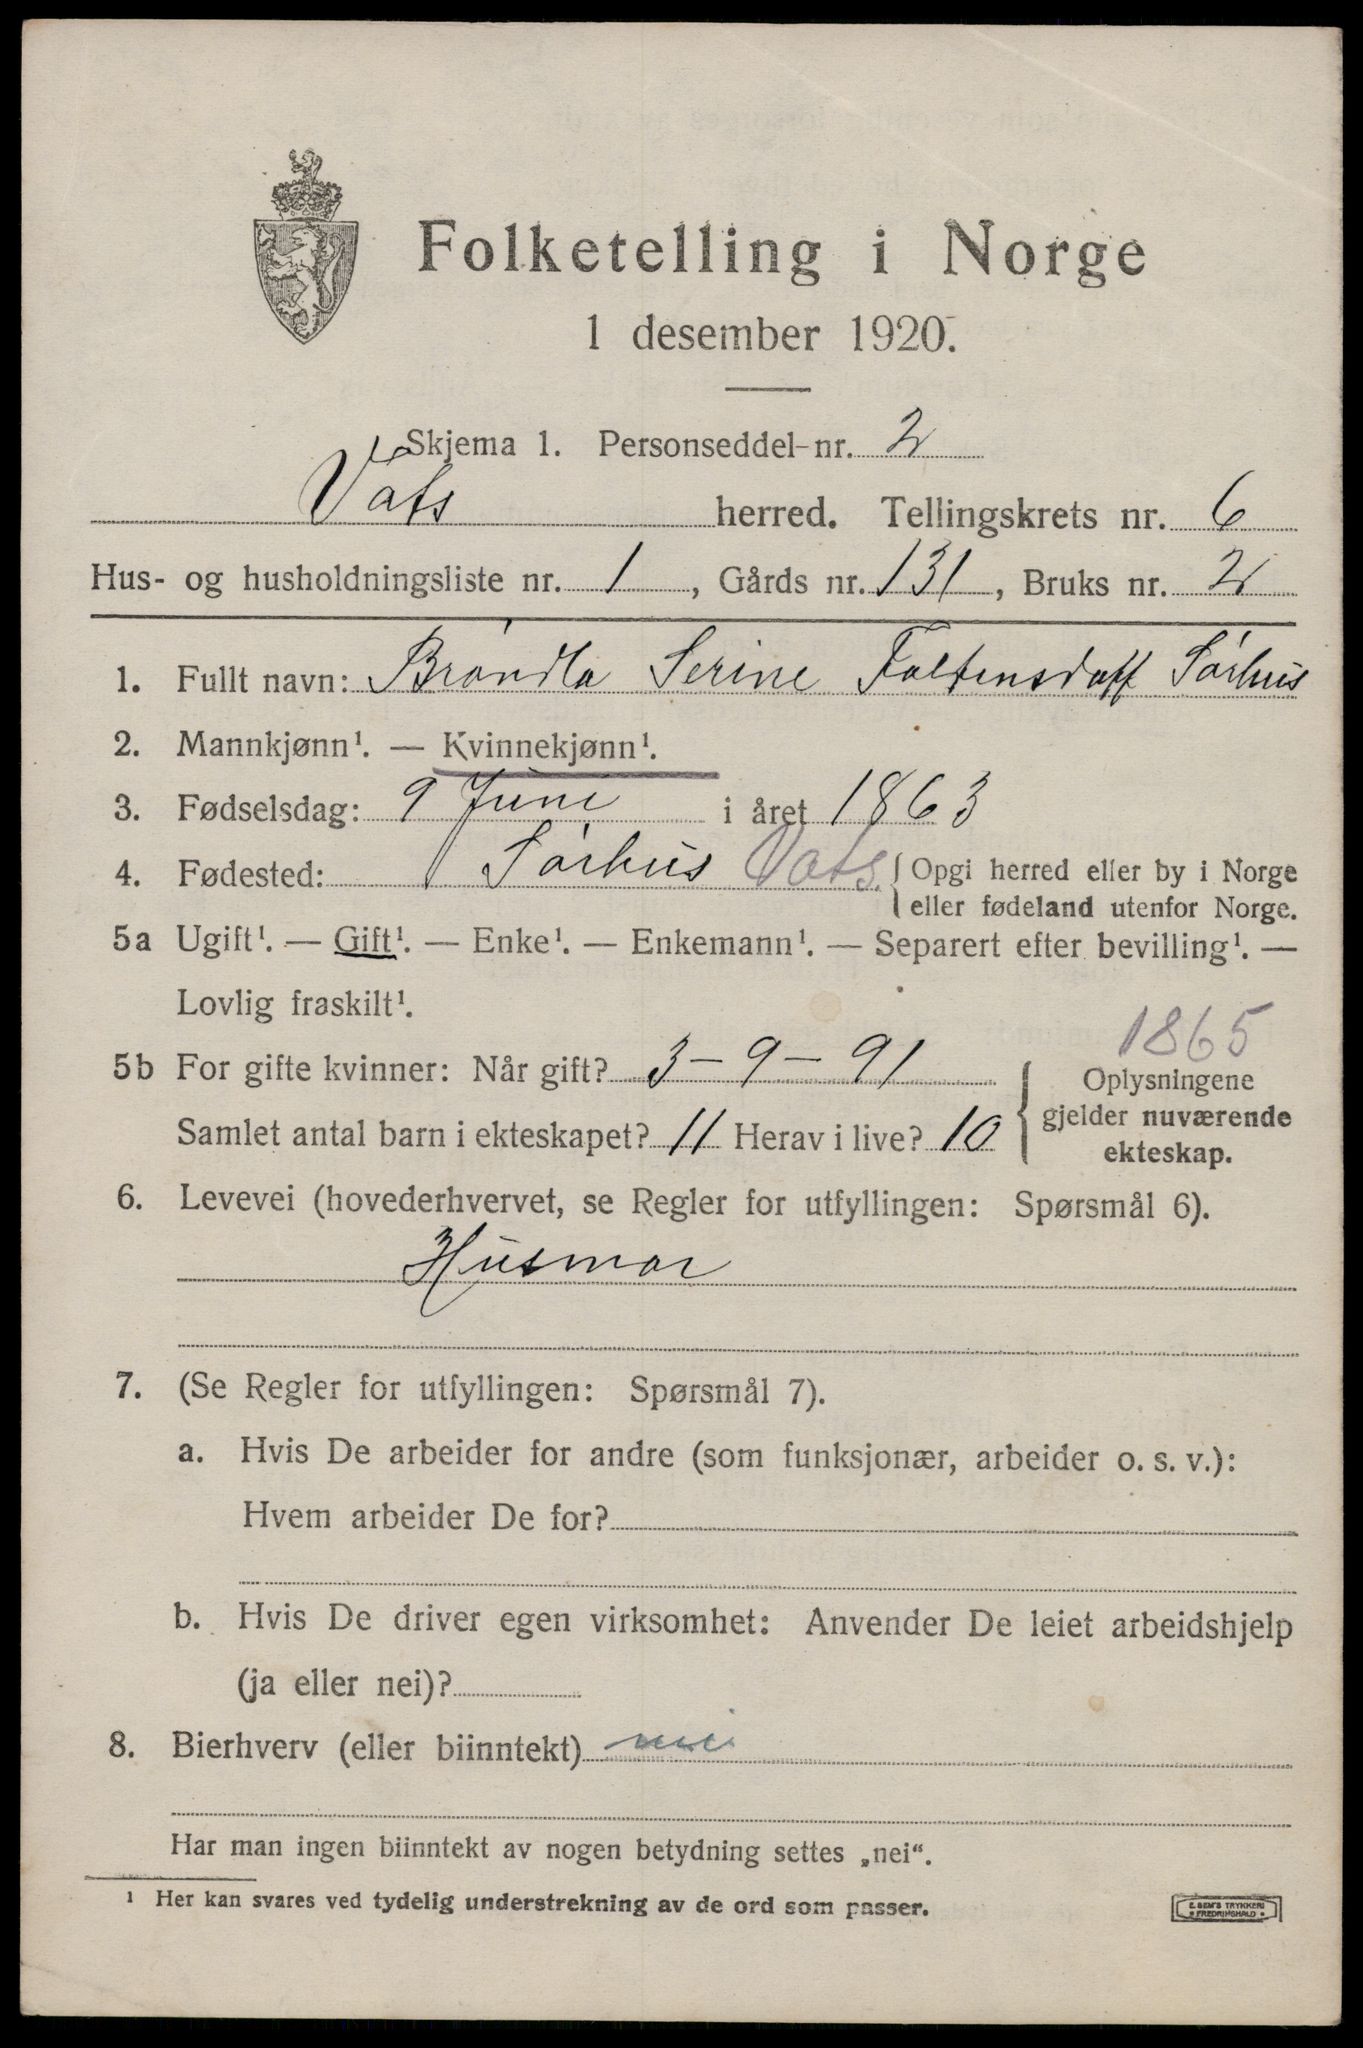 Folketelling i Norge
1 desember 1920.
Skjema 1. Personseddel-nr. 2
Vats herred. Tellingskrets nr. 6
Hus- og husholdningsliste nr. 1, Gårds nr. 131, Bruks nr. 2
1. Fullt navn: Brøndla Serine Falkensdatt Sørhus
2. Mannkjønn¹. — Kvinnekjønn¹.
3. Fødselsdag: 9 Juni i året 1863
4. Fødested: Sørhus Vats. { Opgi herred eller by i Norge
eller fødeland utenfor Norge.
5a Ugift¹. — Gift¹. — Enke¹. — Enkemann¹. — Separert efter bevilling¹. —
Lovlig fraskilt¹.
1865
5b For gifte kvinner: Når gift? 3-9-91
Samlet antal barn i ekteskapet? 11 Herav i live? 10
{ Oplysningene
gjelder nuværende
ekteskap.
6. Levevei (hovederhvervet, se Regler for utfyllingen: Spørsmål 6).
Husmor
7. (Se Regler for utfyllingen: Spørsmål 7).
a. Hvis De arbeider for andre (som funksjonær, arbeider o. s. v.):
Hvem arbeider De for?
b. Hvis De driver egen virksomhet: Anvender De leiet arbeidshjelp
(ja eller nei)?
8. Bierhverv (eller biinntekt) nei
Har man ingen biinntekt av nogen betydning settes „nei“.
¹ Her kan svares ved tydelig understrekning av de ord som passer.
E. SEM'S TRYKKERI
FREDRIKSHALD